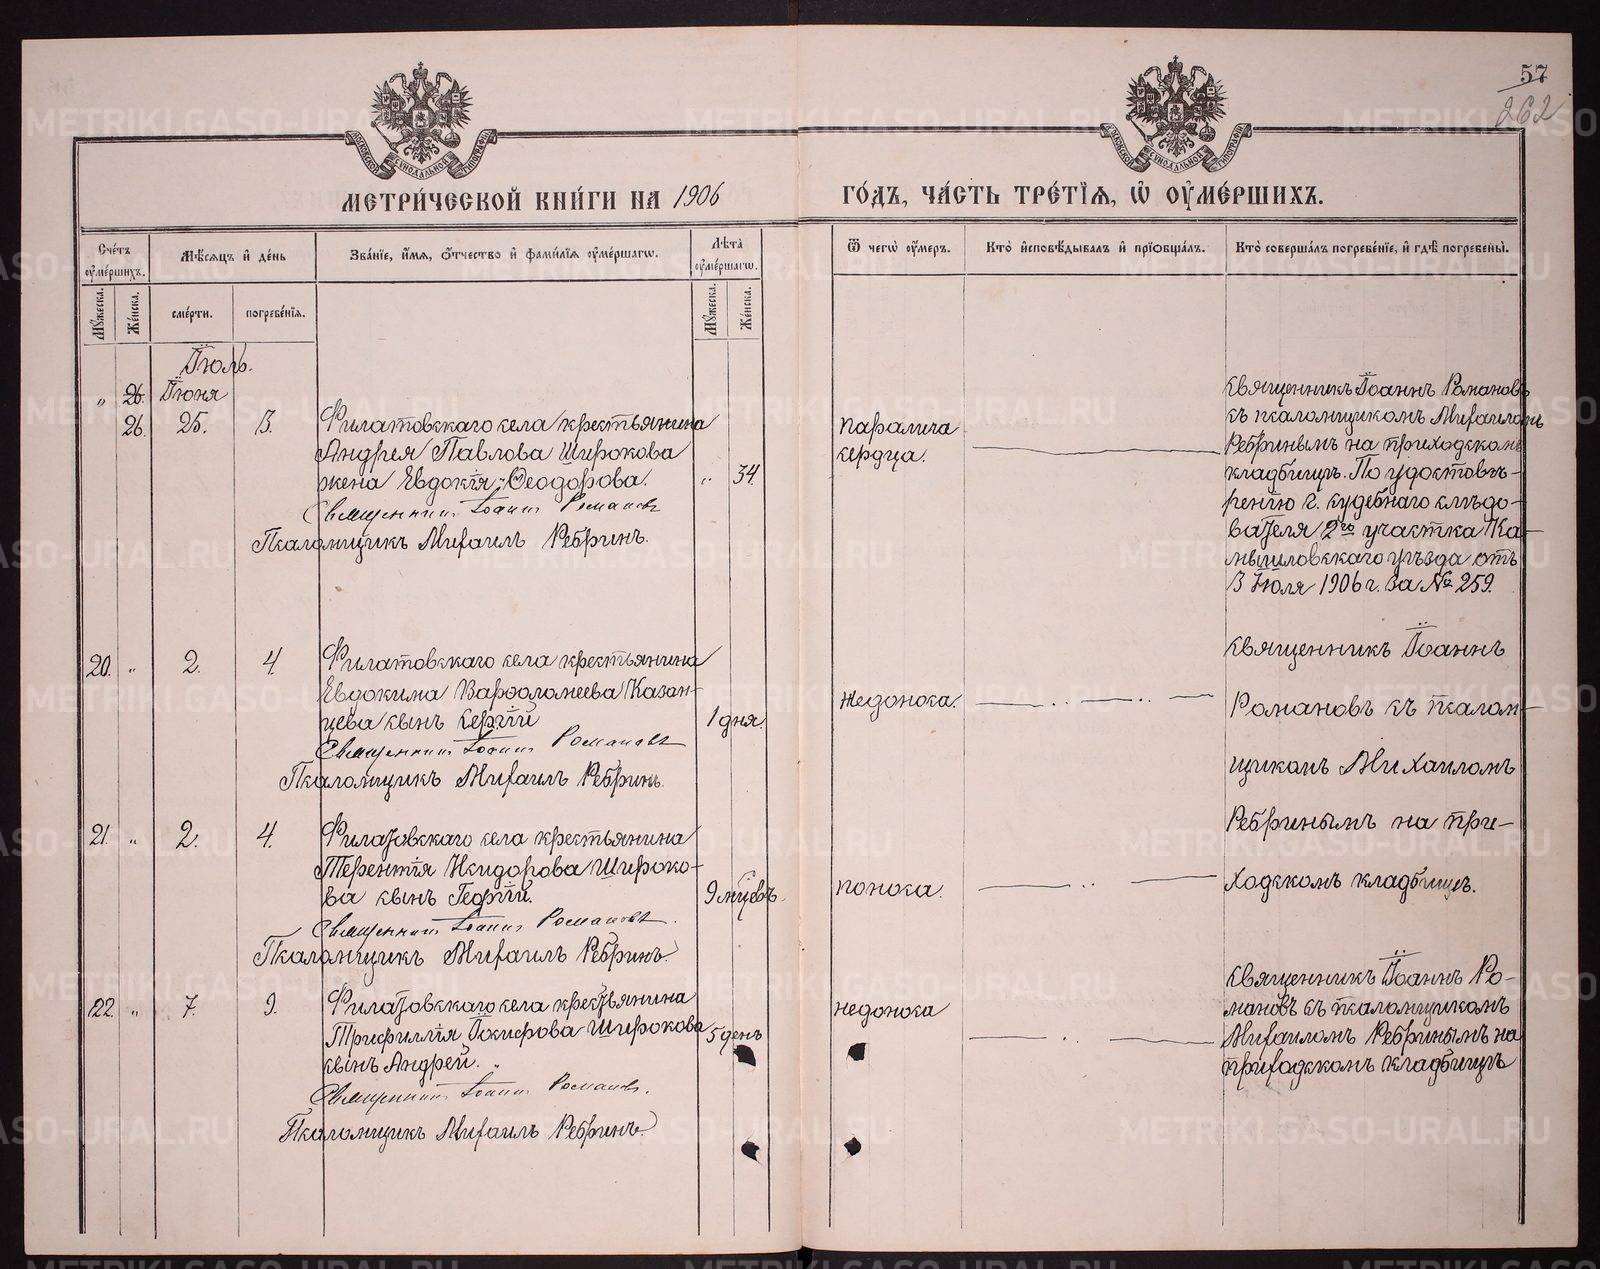 57
262
МЕТРИ́ЧЕСКОЙ КНИ́ГИ НА 1906 ГО́ДЪ, ЧА́СТЬ ТРЕ́ТІЯ, Ѡ҆ ОУ҆МЕ́РШИХЪ.
Сче́тъ оу҆ме́ршихъ.
Мѣ́сяцъ и҆ де́нь
Зва́нїе, и҆́мя, ѻ҆́тчество и҆ фами́лїя оу҆ме́ршагѡ.
Лѣта̀ оу҆ме́ршагѡ.
Ѿ чегѡ̀ оу҆́меръ.
Кто̀ и҆сповѣ́дывалъ и҆ прїѡбща́лъ.
Кто̀ соверша́лъ погребе́нїе, и҆ гдѣ̀ погребены̀.
Мꙋ́жеска.
Же́нска.
сме́рти.
погребе́нїя.
Мꙋ́жеска.
Же́нска.
Іюль.
„ 26. Іюня
26. 25. 3. Филатовскаго села крестьянина
Андрея Павлова Широкова
жена Евдокія Ѳеодорова. „ 34.
Священникъ Іоаннъ Романовъ
Псаломщикъ Михаилъ Ребринъ.
паралича
сердца.
священникъ Іоаннъ Романовъ
съ псаломщикомъ Михаиломъ
Ребринымъ на приходскомъ
кладбищѣ. По удостовѣ-
ренію г. судебнаго слѣдо-
вателя 2го участка Ка-
мышловскаго уѣзда отъ
3 Іюля 1906 г. за № 259.
20. „ 2. 4. Филатовскаго села крестьянина
Евдокима Варѳоломеева Казан-
цева сынъ Сергій 1 дня.
Священникъ Іоаннъ Романовъ
Псаломщикъ Михаилъ Ребринъ.
недоноса.
священникъ Іоаннъ
Романовъ съ псалом-
щикомъ Михаиломъ
Ребринымъ на при-
ходскомъ кладбищѣ.
21. „ 2. 4. Филатовскаго села крестьянина
Терентія Исидорова Широко-
ва сынъ Георгій. 9 мцевъ.
Священникъ Іоаннъ Романовъ.
Псаломщикъ Михаилъ Ребринъ.
поноса.
22. „ 7. 9. Филатовскаго села крестьянина
Трифиллія Іосифова Широкова 5 день
сынъ Андрей. „
Священникъ Іоаннъ Романовъ.
Псаломщикъ Михаилъ Ребринъ.
недоноса
священникъ Іоаннъ Ро-
мановъ съ псаломщикомъ
Михаиломъ Ребринымъ на
приходскомъ кладбищѣ
METRIKI.GASO-URAL.RU